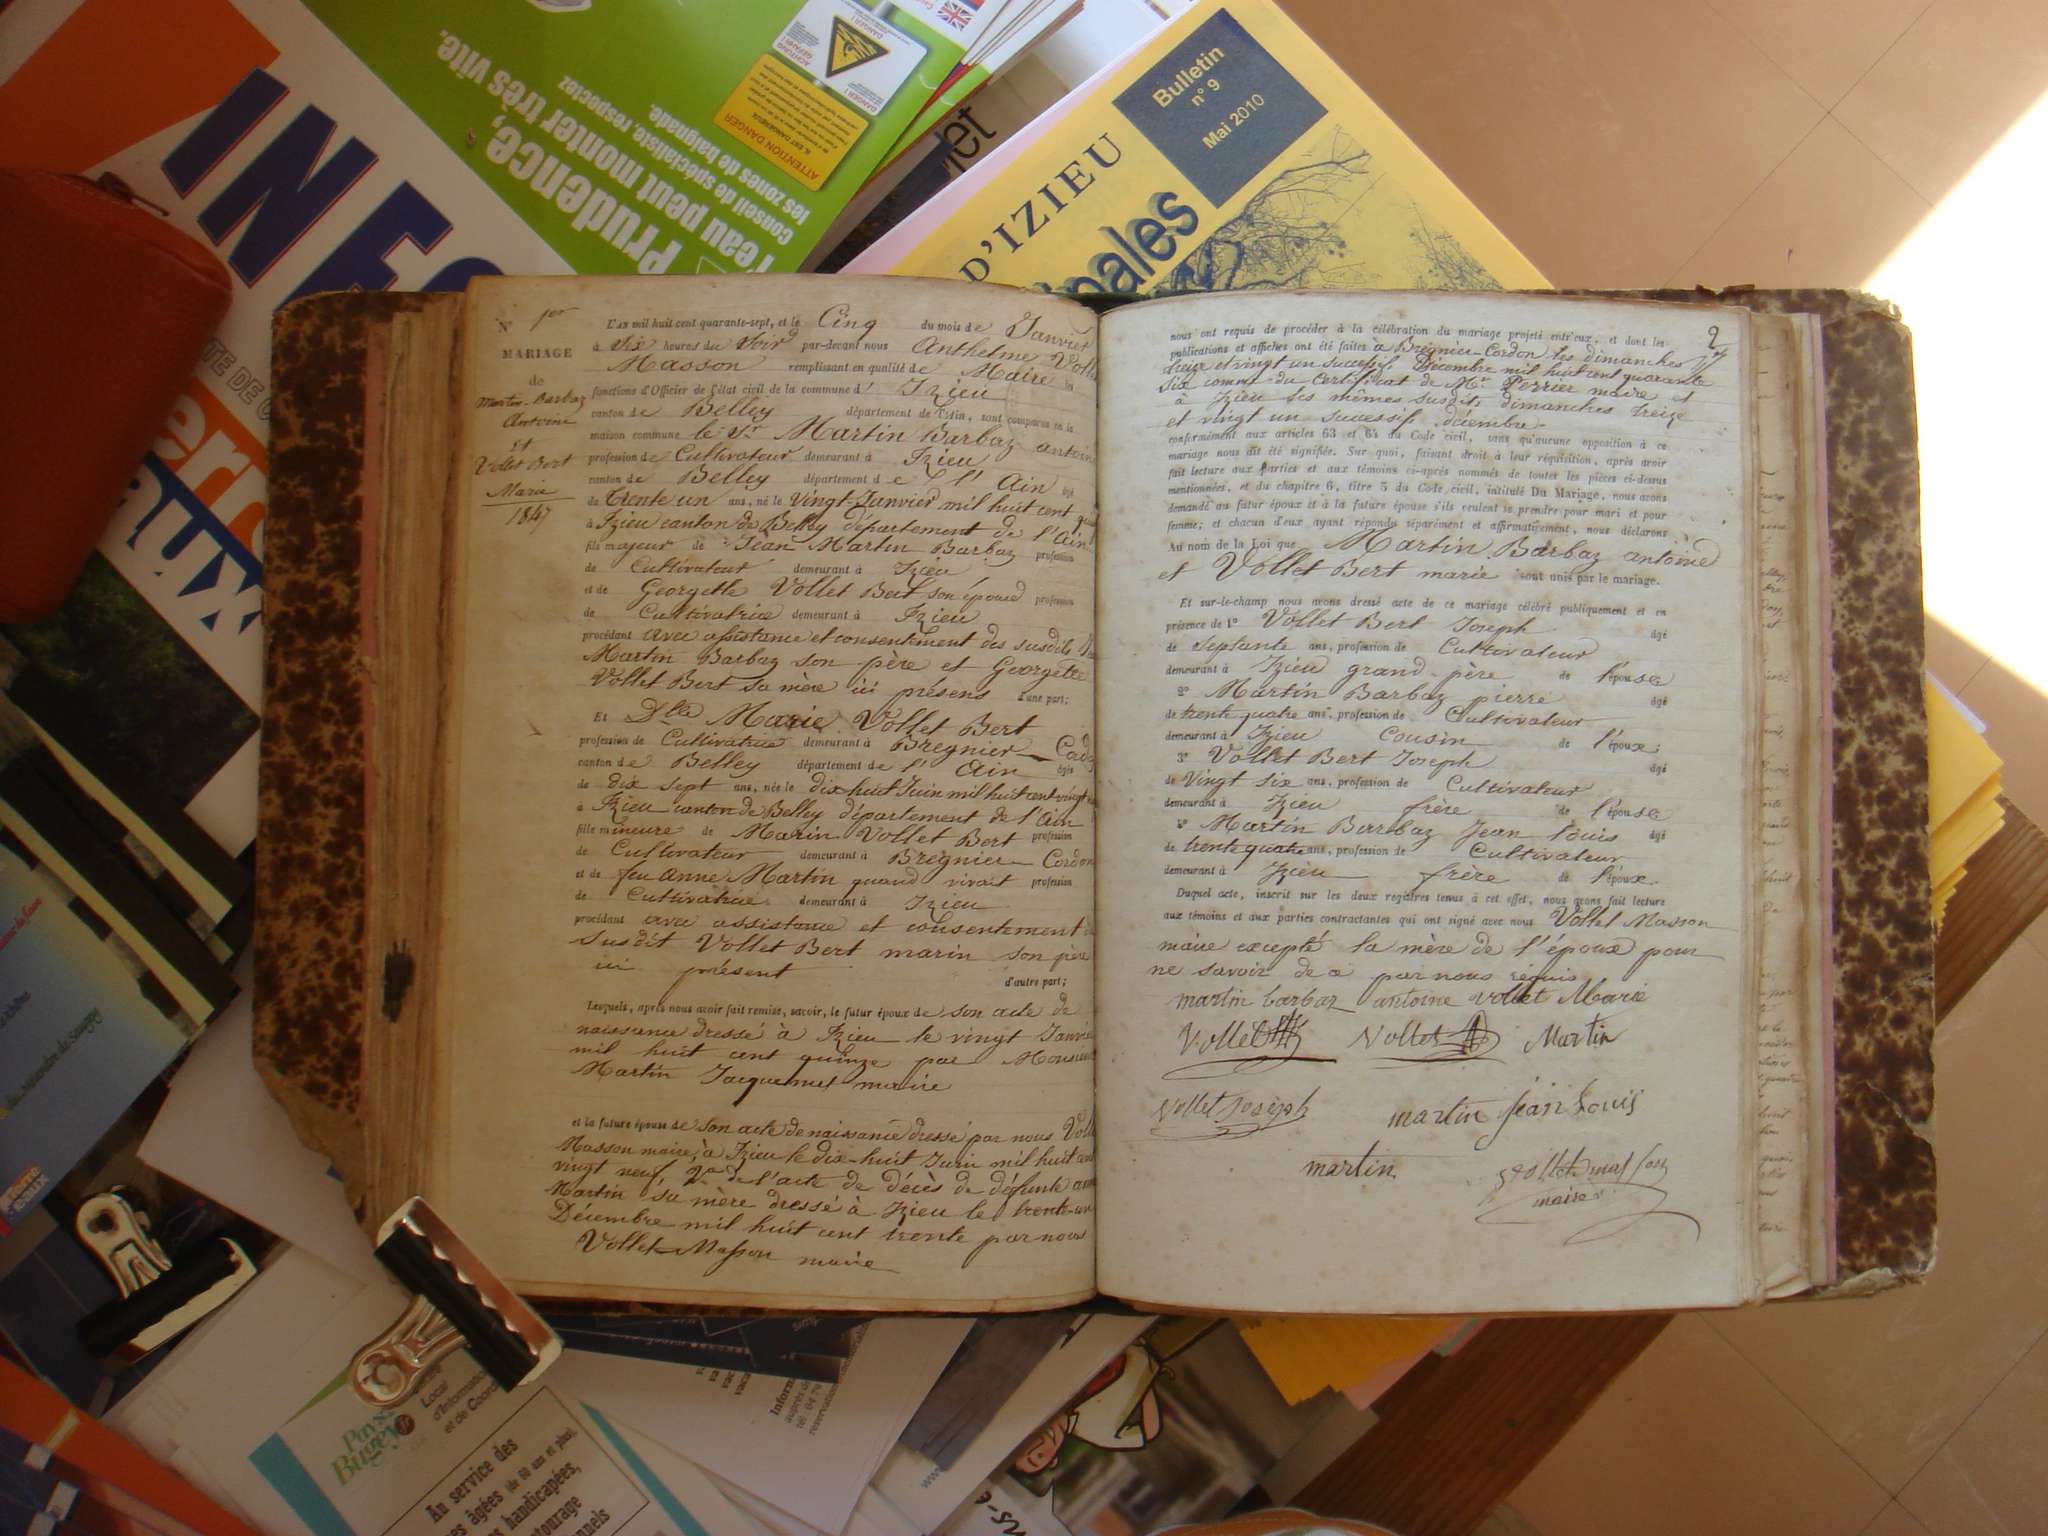 INFO
Prudence,
l'eau peut monter très vite.
conseil de spécialiste, respectez
les zones de baignade.
ATTENTION DANGER
Bulletin
n° 9
Mai 2010
D'IZIEU
pales
N° 1er
MARIAGE
de
Martin-Barbaz
Antoine
et
Vollet Bert
Marie
1847
L'AN mil huit cent quarante-sept, et le Cinq du mois de Janvier
à Six heures du Soir par-devant nous Anthelme Voll
Masson remplissant en qualité de Maire les
fonctions d'Officier de l'état civil de la commune d' Izieu
canton de Belley département de l'Ain, sont comparus en la
maison commune le Sr Martin Barbaz antoine
profession de Cultivateur demeurant à Izieu
canton de Belley département de l'Ain âgé
de trente un ans, né le Vingt Janvier mil huit cent qui
à Izieu canton de Belley département de l'Ain
fils majeur de Jean Martin Barbaz profession
de Cultivateur demeurant à Izieu
et de Georgette Vollet Bert son épouse profession
de Cultivatrice demeurant à Izieu
procédant avec assistance et consentement des susdits
Martin Barbaz son père et Georgette
Vollet Bert sa mère ici présens d'une part;
Et Dlle Marie Vollet Bert
profession de Cultivatrice demeurant à Bregnier Cordo
canton de Belley département de l'Ain âgée
de dix sept ans, née le dix huit Juin mil huit cent vingt n
à Izieu canton de Belley département de l'Ain
fille mineure de Marin Vollet Bert profession
de Cultivateur demeurant à Bregnier Cordon
et de feu Anne Martin quand vivait profession
de Cultivatrice demeurant à Izieu
procédant avec assistance et consentement
Susdit Vollet Bert marin son père
ici présent
d'autre part;
Lesquels, après nous avoir fait remise, savoir, le futur époux de son acte de
naissance dressé à Izieu le vingt Janvier
mil huit cent quinze par Monsieur
Martin Jacquemet maire
et la future épouse de son acte de naissance dressé par nous Voll
Masson maire, à Izieu le dix-huit Juin mil huit cent
vingt neuf, 2° de l'acte de décès de défunte ann
Martin sa mère dressé à Izieu le trente-un
Décembre mil huit cent trente par nous
Vollet-Masson maire
2
nous ont requis de procéder à la célébration du mariage projeté entr'eux, et dont les
publications et affiches ont été faites à Bregnier-Cordon les dimanches
treize et vingt un successifs Décembre mil huit cent quarante
six comme du Certificat de Mr Perrier maire et
à Izieu les mêmes susdits dimanches treize
et vingt un successifs décembre.
conformément aux articles 63 et 64 du Code civil, sans qu'aucune opposition à ce
mariage nous ait été signifiée. Sur quoi, faisant droit à leur réquisition, après avoir
fait lecture aux parties et aux témoins ci-après nommés de toutes les pièces ci-dessus
mentionnées, et du chapitre 6, titre 5 du Code civil, intitulé Du Mariage, nous avons
demandé au futur époux et à la future épouse s'ils veulent se prendre pour mari et pour
femme; et chacun d'eux ayant répondu séparément et affirmativement, nous déclarons
Au nom de la Loi que Martin Barbaz antoine
et Vollet Bert marie sont unis par le mariage.
Et sur-le-champ nous avons dressé acte de ce mariage célébré publiquement et en
présence de 1° Vollet Bert Joseph âgé
de Septante ans, profession de Cultivateur
demeurant à Izieu grand-père de l'épouse
2° Martin Barbaz pierre âgé
de trente quatre ans, profession de Cultivateur
demeurant à Izieu Cousin de l'époux;
3° Vollet Bert Joseph âgé
de Vingt six ans, profession de Cultivateur
demeurant à Izieu frère de l'épouse
4° Martin Barbaz Jean louis âgé
de trente quatre ans, profession de Cultivateur
demeurant à Izieu frère de l'époux.
Duquel acte, inscrit sur les deux registres tenus à cet effet, nous avons fait lecture
aux témoins et aux parties contractantes qui ont signé avec nous Vollet Masson
maire excepté la mère de l'époux pour
ne savoir de ce par nous requis
martin barbaz antoine vollet Marie
Vollet Vollet Martin
Vollet Joseph martin jean louis
martin vollet masson
maire
Pays
Bugey
Local
d'Information
et de Coord
Au service des
âgées (de 60 ans et plus),
handicapées,
entourage